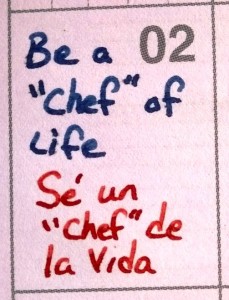 Be a 02
"Chef" of
Life
Sé un
"Chef" de
la Vida